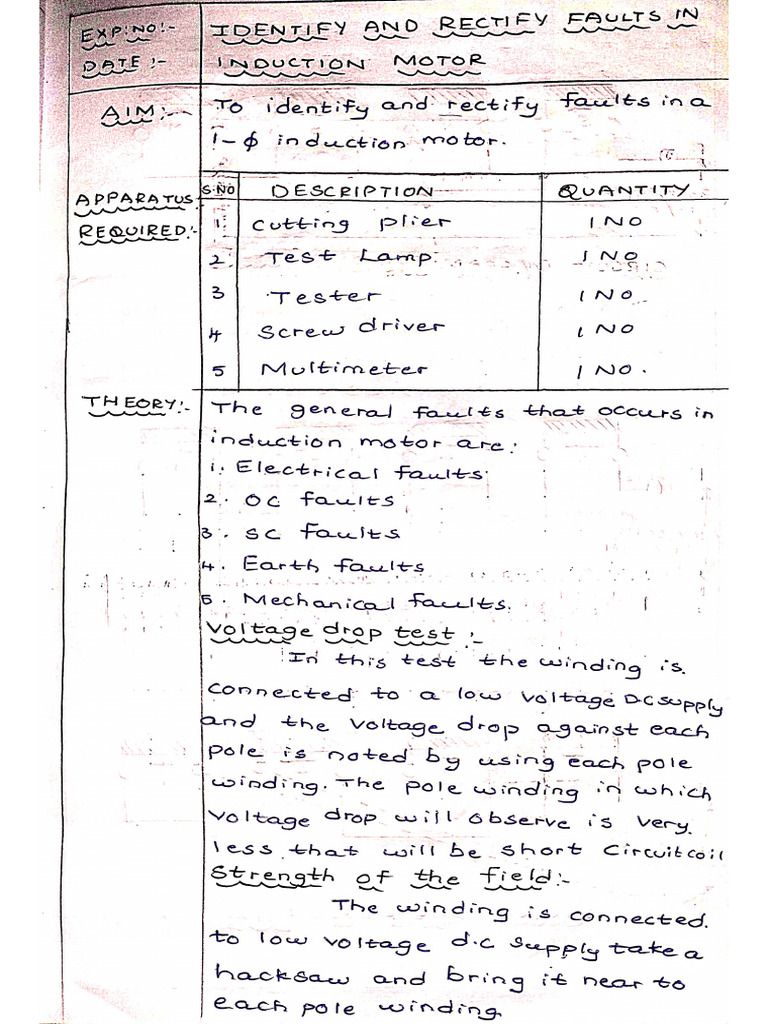 EXP:NO:-
IDENTIFY AND RECTIFY FAULTS IN
DATE :-
INDUCTION MOTOR
AIM:-
To identify and rectify faults in a
1-ϕ induction motor.
APPARATUS
REQUIRED:-
S.NO DESCRIPTION QUANTITY
1 cutting plier 1 NO
2 Test Lamp 1 NO
3 Tester 1 NO
4 Screw driver 1 NO
5 Multimeter 1 NO.
THEORY:-
The general faults that occurs in
induction motor are:
1. Electrical faults
2. OC faults
3. SC faults
4. Earth faults
5. Mechanical faults.
Voltage drop test :-
In this test the winding is
connected to a low voltage D.C supply
and the voltage drop against each
pole is noted by using each pole
winding. The pole winding in which
voltage drop will observe is very
less that will be short circuit coil
Strength of the field:-
The winding is connected
to low voltage d.c supply take a
hacksaw and bring it near to
each pole winding